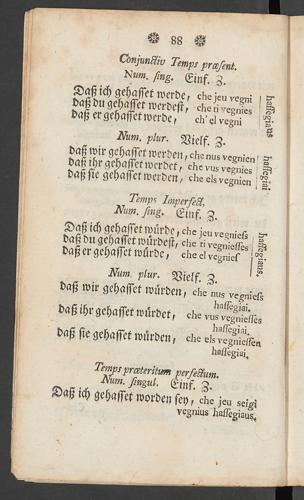 88
Conjunctiv Temps præsent.
Num. sing. Einf. Z.
Daß ich gehasset werde, che jeu vegni
daß du gehasset werdest, che ti vegnies
daß er gehasset werde, ch' el vegni
hassegiaus
Num. plur. Vielf. Z.
daß wir gehasset werden, che nus vegnien
daß ihr gehasset werdet, che vus vegnies
daß sie gehasset werden, che els vegnien
hassegiai
Temps Imperfect.
Num. sing. Einf. Z.
Daß ich gehasset würde, che jeu vegniess
daß du gehasset würdest, che ti vegniesses
daß er gehasset würde, che el vegniess
hassegiaus.
Num. plur. Vielf. Z.
daß wir gehasset würden, che nus vegniess
hassegiai.
daß ihr gehasset würdet, che vus vegniesses
hassegiai.
daß sie gehasset würden, che els vegniessen
hassegiai.
Temps præteritum perfectum.
Num. singul. Einf. Z.
Daß ich gehasset worden sey, che jeu seigi
vegnius hassegiaus.